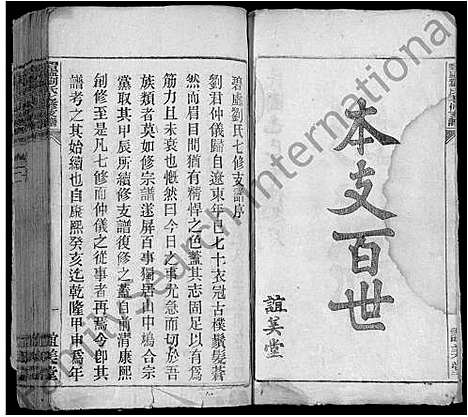 本支百世
誼美堂
碧虛劉氏七修支譜序
劉君仲儀歸自遼東年巳七十衣冠古樸鬚髮蒼
然而眉目間猶有精悍之色蓋其志固足以有爲
筋力且未衰也慨然曰今日之事尤急而切於吾
族類者莫如修宗譜遂屏百事獨居山中鳩合宗
黨取其甲辰所續修支譜復修之蓋自前清康熙
創修至是凡七修而仲儀之從事者再焉今卽其
譜考之其始續也自康熙癸亥迄乾隆甲申爲年
誼美堂